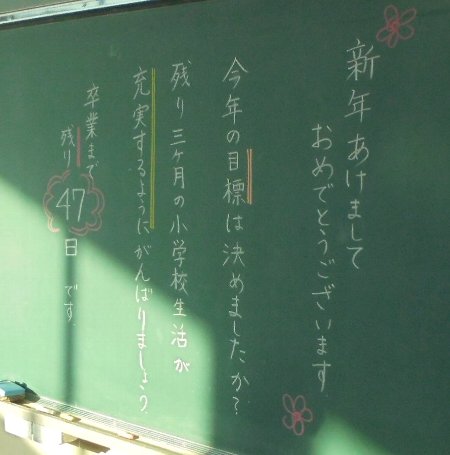 新年あけまして
おめでとうございます.
今年の目標は決めましたか?
残り三ヶ月の小学校生活が
充実するようにがんばりましょう.
卒業まで
残り47日です.